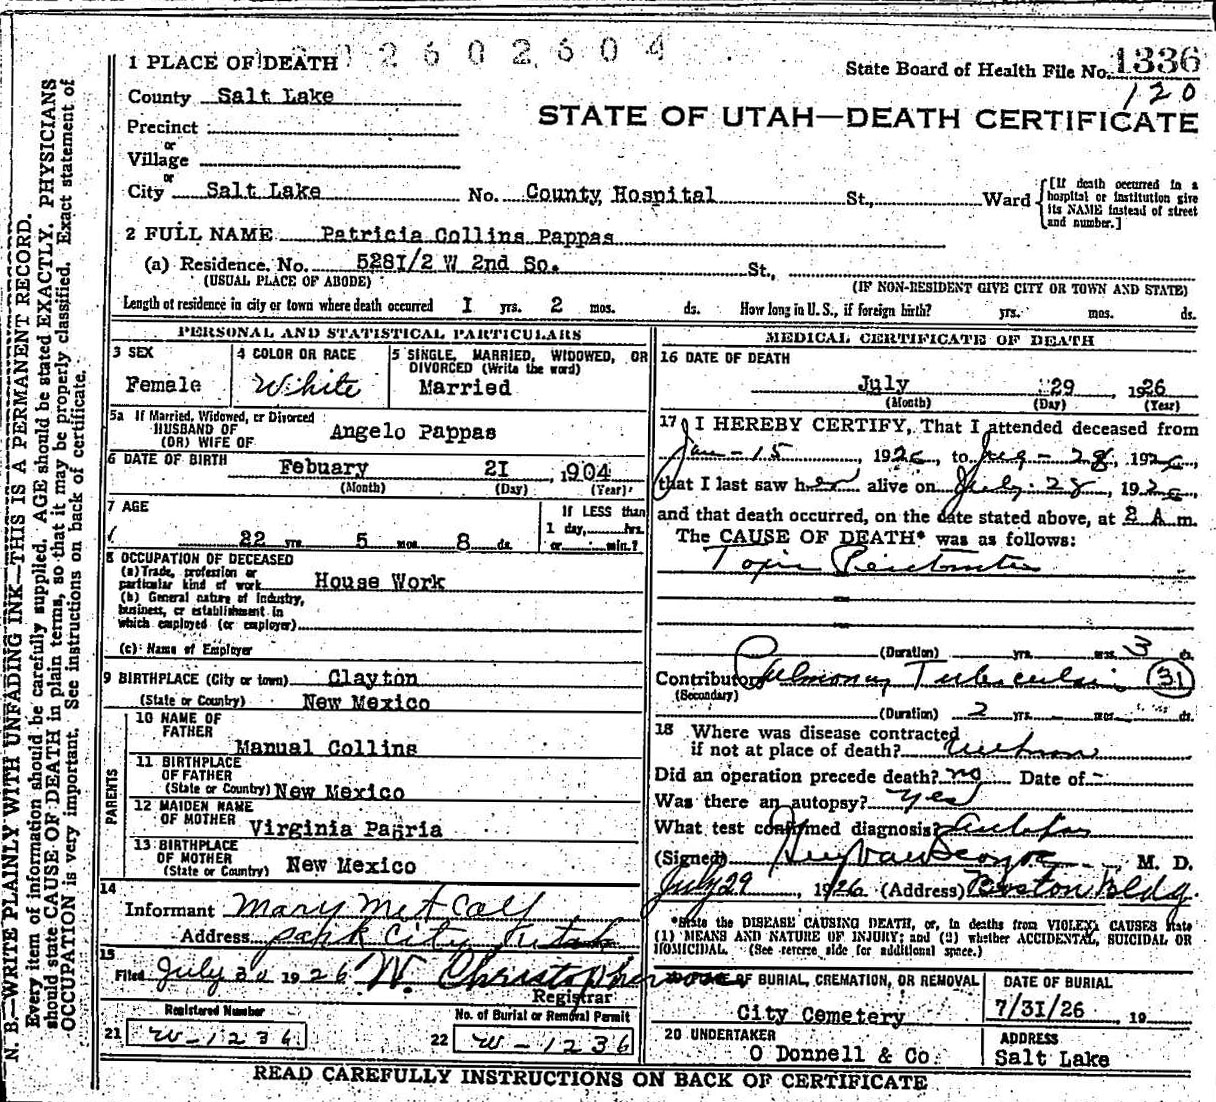 2602604
1 PLACE OF DEATH
State Board of Health File No. 1336
120
County Salt Lake
STATE OF UTAH—DEATH CERTIFICATE
Precinct
or
Village
or
City Salt Lake No. County Hospital St., Ward [If death occurred in a hospital or institution give its NAME instead of street and number.]
2 FULL NAME Patricia Collins Pappas
(a) Residence. No. 528I/2 W 2nd So. St.,
(USUAL PLACE OF ABODE) (IF NON-RESIDENT GIVE CITY OR TOWN AND STATE)
Length of residence in city or town where death occurred I yrs. 2 mos. ds. How long in U. S., if foreign birth? yrs. mos. ds.
PERSONAL AND STATISTICAL PARTICULARS
3 SEX
Female
4 COLOR OR RACE
White
5 SINGLE, MARRIED, WIDOWED, OR
DIVORCED (Write the word)
Married
5a If Married, Widowed, or Divorced
HUSBAND OF
(OR) WIFE OF Angelo Pappas
6 DATE OF BIRTH Febuary 2I, 1904
(Month) (Day) (Year)
7 AGE
22 yrs 5 mos 8 ds.
If LESS than
1 day, hrs.
or min.?
8 OCCUPATION OF DECEASED
(a) Trade, profession or
particular kind of work House Work
(b) General nature of Industry,
business, or establishment in
which employed (or employer)
(c) Name of Employer
9 BIRTHPLACE (City or town) Clayton
(State or Country) New Mexico
PARENTS
10 NAME OF
FATHER
Manual Collins
11 BIRTHPLACE
OF FATHER
(State or Country) New Mexico
12 MAIDEN NAME
OF MOTHER Virginia
13 BIRTHPLACE
OF MOTHER
(State or Country) New Mexico
14
Informant Mary Metcalf
Address Park City Utah
15
Filed July 30 1926 W. Christopherson
Registrar
Registered Number
21 W-1236
No. of Burial or Removal Permit
22 W-1236
MEDICAL CERTIFICATE OF DEATH
16 DATE OF DEATH
July 29, 1926
(Month) (Day) (Year)
17 I HEREBY CERTIFY, That I attended deceased from
Jan-15, 1926, to July-28, 1926,
that I last saw her alive on July-28, 1926,
and that death occurred, on the date stated above, at 2 A m.
The CAUSE OF DEATH* was as follows:
Toxic Peritonitis
(Duration) yrs. mos. 3 ds.
Contributory Pulmonary Tuberculosis 31
(Secondary)
(Duration) 2 yrs. mos. ds.
18 Where was disease contracted
if not at place of death? Unknown
Did an operation precede death? no Date of -
Was there an autopsy? Yes
What test confirmed diagnosis? Autopsy
(Signed) M. D.
July 29, 1926 (Address) Boston Bldg.
*State the DISEASE CAUSING DEATH, or, in deaths from VIOLENT CAUSES state
(1) MEANS AND NATURE OF INJURY; and (2) whether ACCIDENTAL, SUICIDAL OR
HOMICIDAL. (See reverse side for additional space.)
OF BURIAL, CREMATION, OR REMOVAL
City Cemetery
DATE OF BURIAL
7/31/26, 19
20 UNDERTAKER
O Donnell & Co.
ADDRESS
Salt Lake
READ CAREFULLY INSTRUCTIONS ON BACK OF CERTIFICATE
N. B.—WRITE PLAINLY WITH UNFADING INK—THIS IS A PERMANENT RECORD.
Every item of information should be carefully supplied. AGE should be stated EXACTLY. PHYSICIANS
should state CAUSE OF DEATH in plain terms, so that it may be properly classified. Exact statement of
OCCUPATION is very important. See instructions on back of certificate.